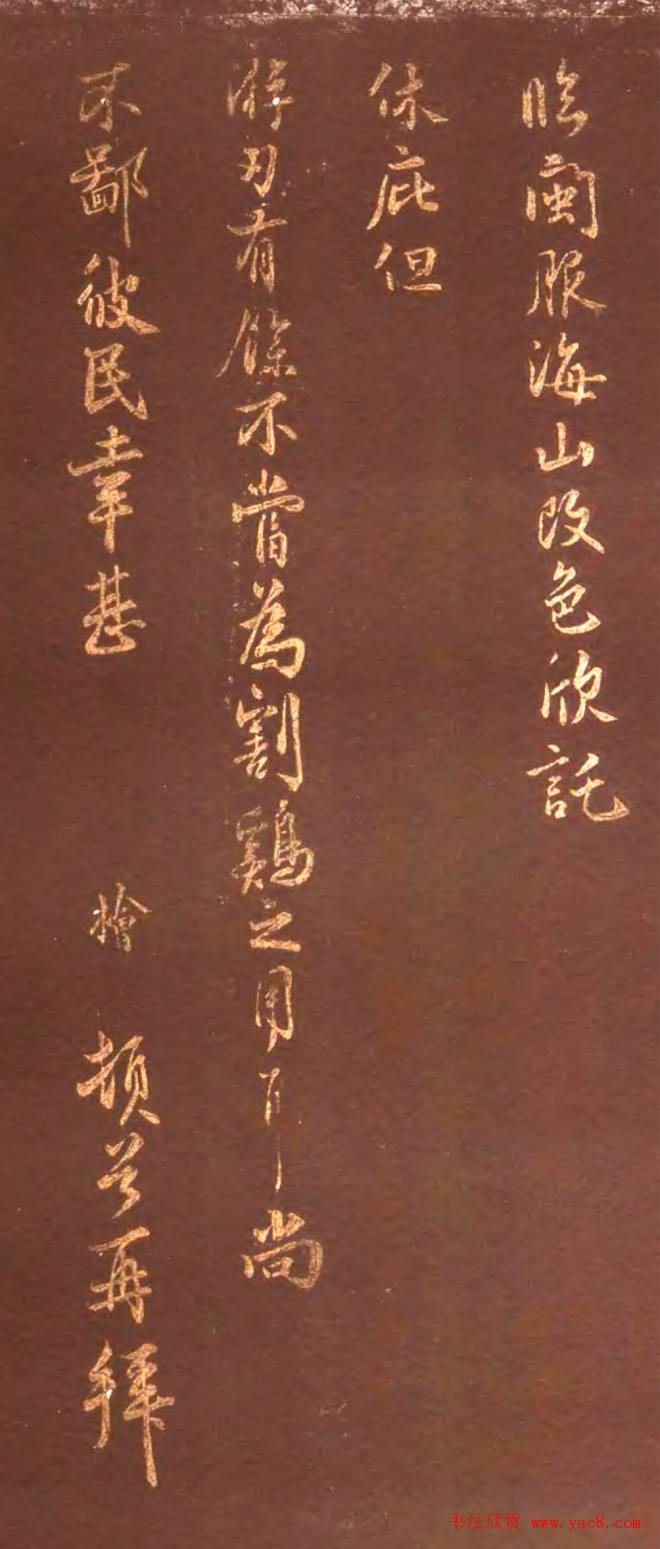 臨閩服海山改色欣託
休庇但
游刃有餘不當為割鷄之用耳尚
不鄙彼民幸甚
檜 頓首再拜
书法欣赏 www.yac8.com